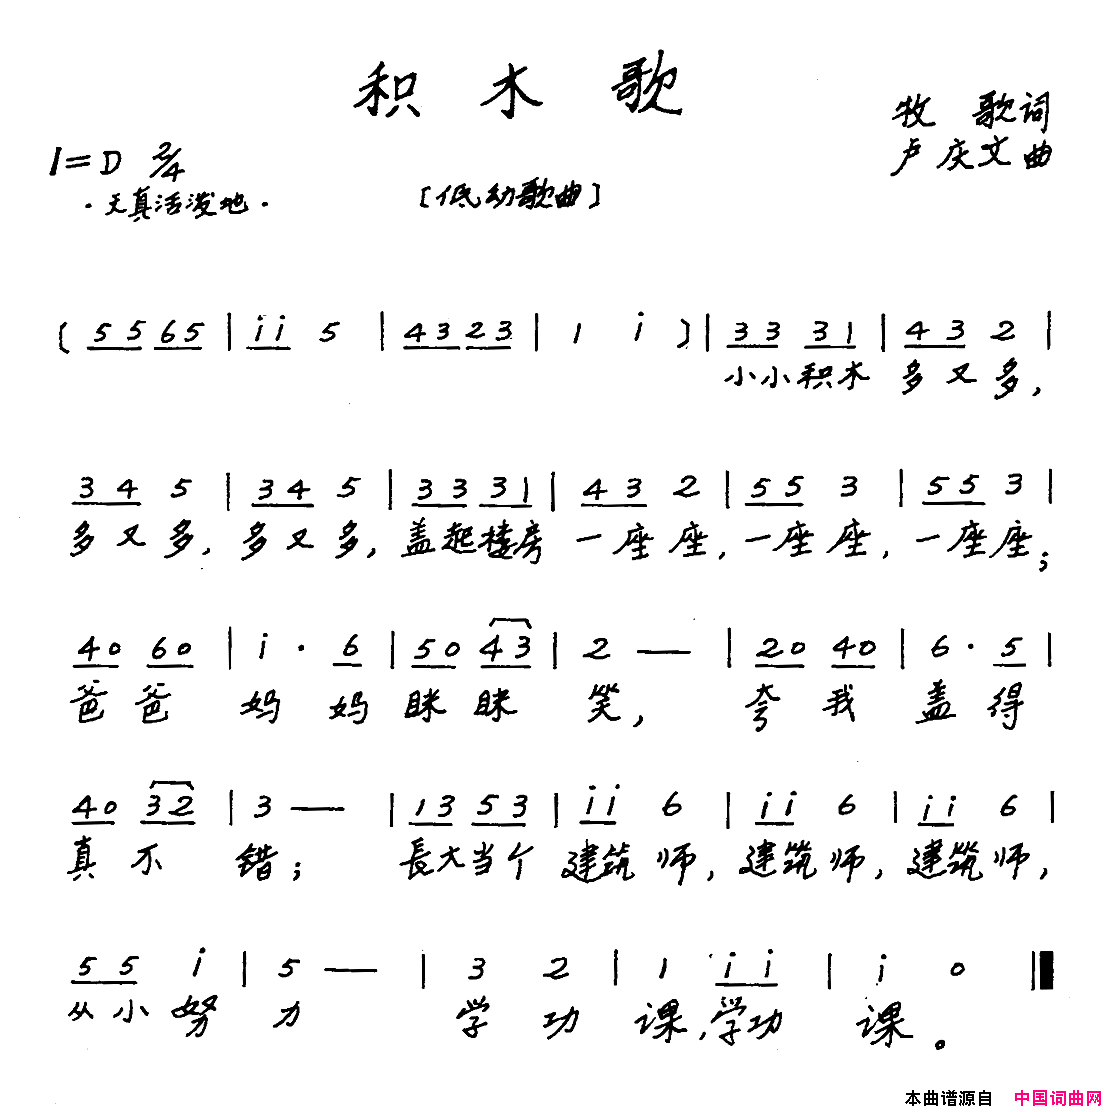 积木歌
牧歌词
1=D 2/4
卢庆文曲
·天真活泼地·
［低幼歌曲］
( 5 5 6 5 | i i 5 | 4 3 2 3 | 1 i ) | 3 3 3 1 | 4 3 2 |
小小积木 多又多,
3 4 5 | 3 4 5 | 3 3 3 1 | 4 3 2 | 5 5 3 | 5 5 3 |
多又多, 多又多, 盖起楼房 一座座, 一座座, 一座座;
4 0 6 0 | i · 6 | 5 0 4 3 | 2 — | 2 0 4 0 | 6 · 5 |
爸爸 妈妈 眯眯 笑, 夸我 盖得
4 0 3 2 | 3 — | 1 3 5 3 | i i 6 | i i 6 | i i 6 |
真不 错; 長大当个 建筑师, 建筑师, 建筑师,
5 5 i | 5 — | 3 2 | 1 i i | i 0 |
从小努 力 学功 课,学功 课。
本曲谱源自 中国词曲网